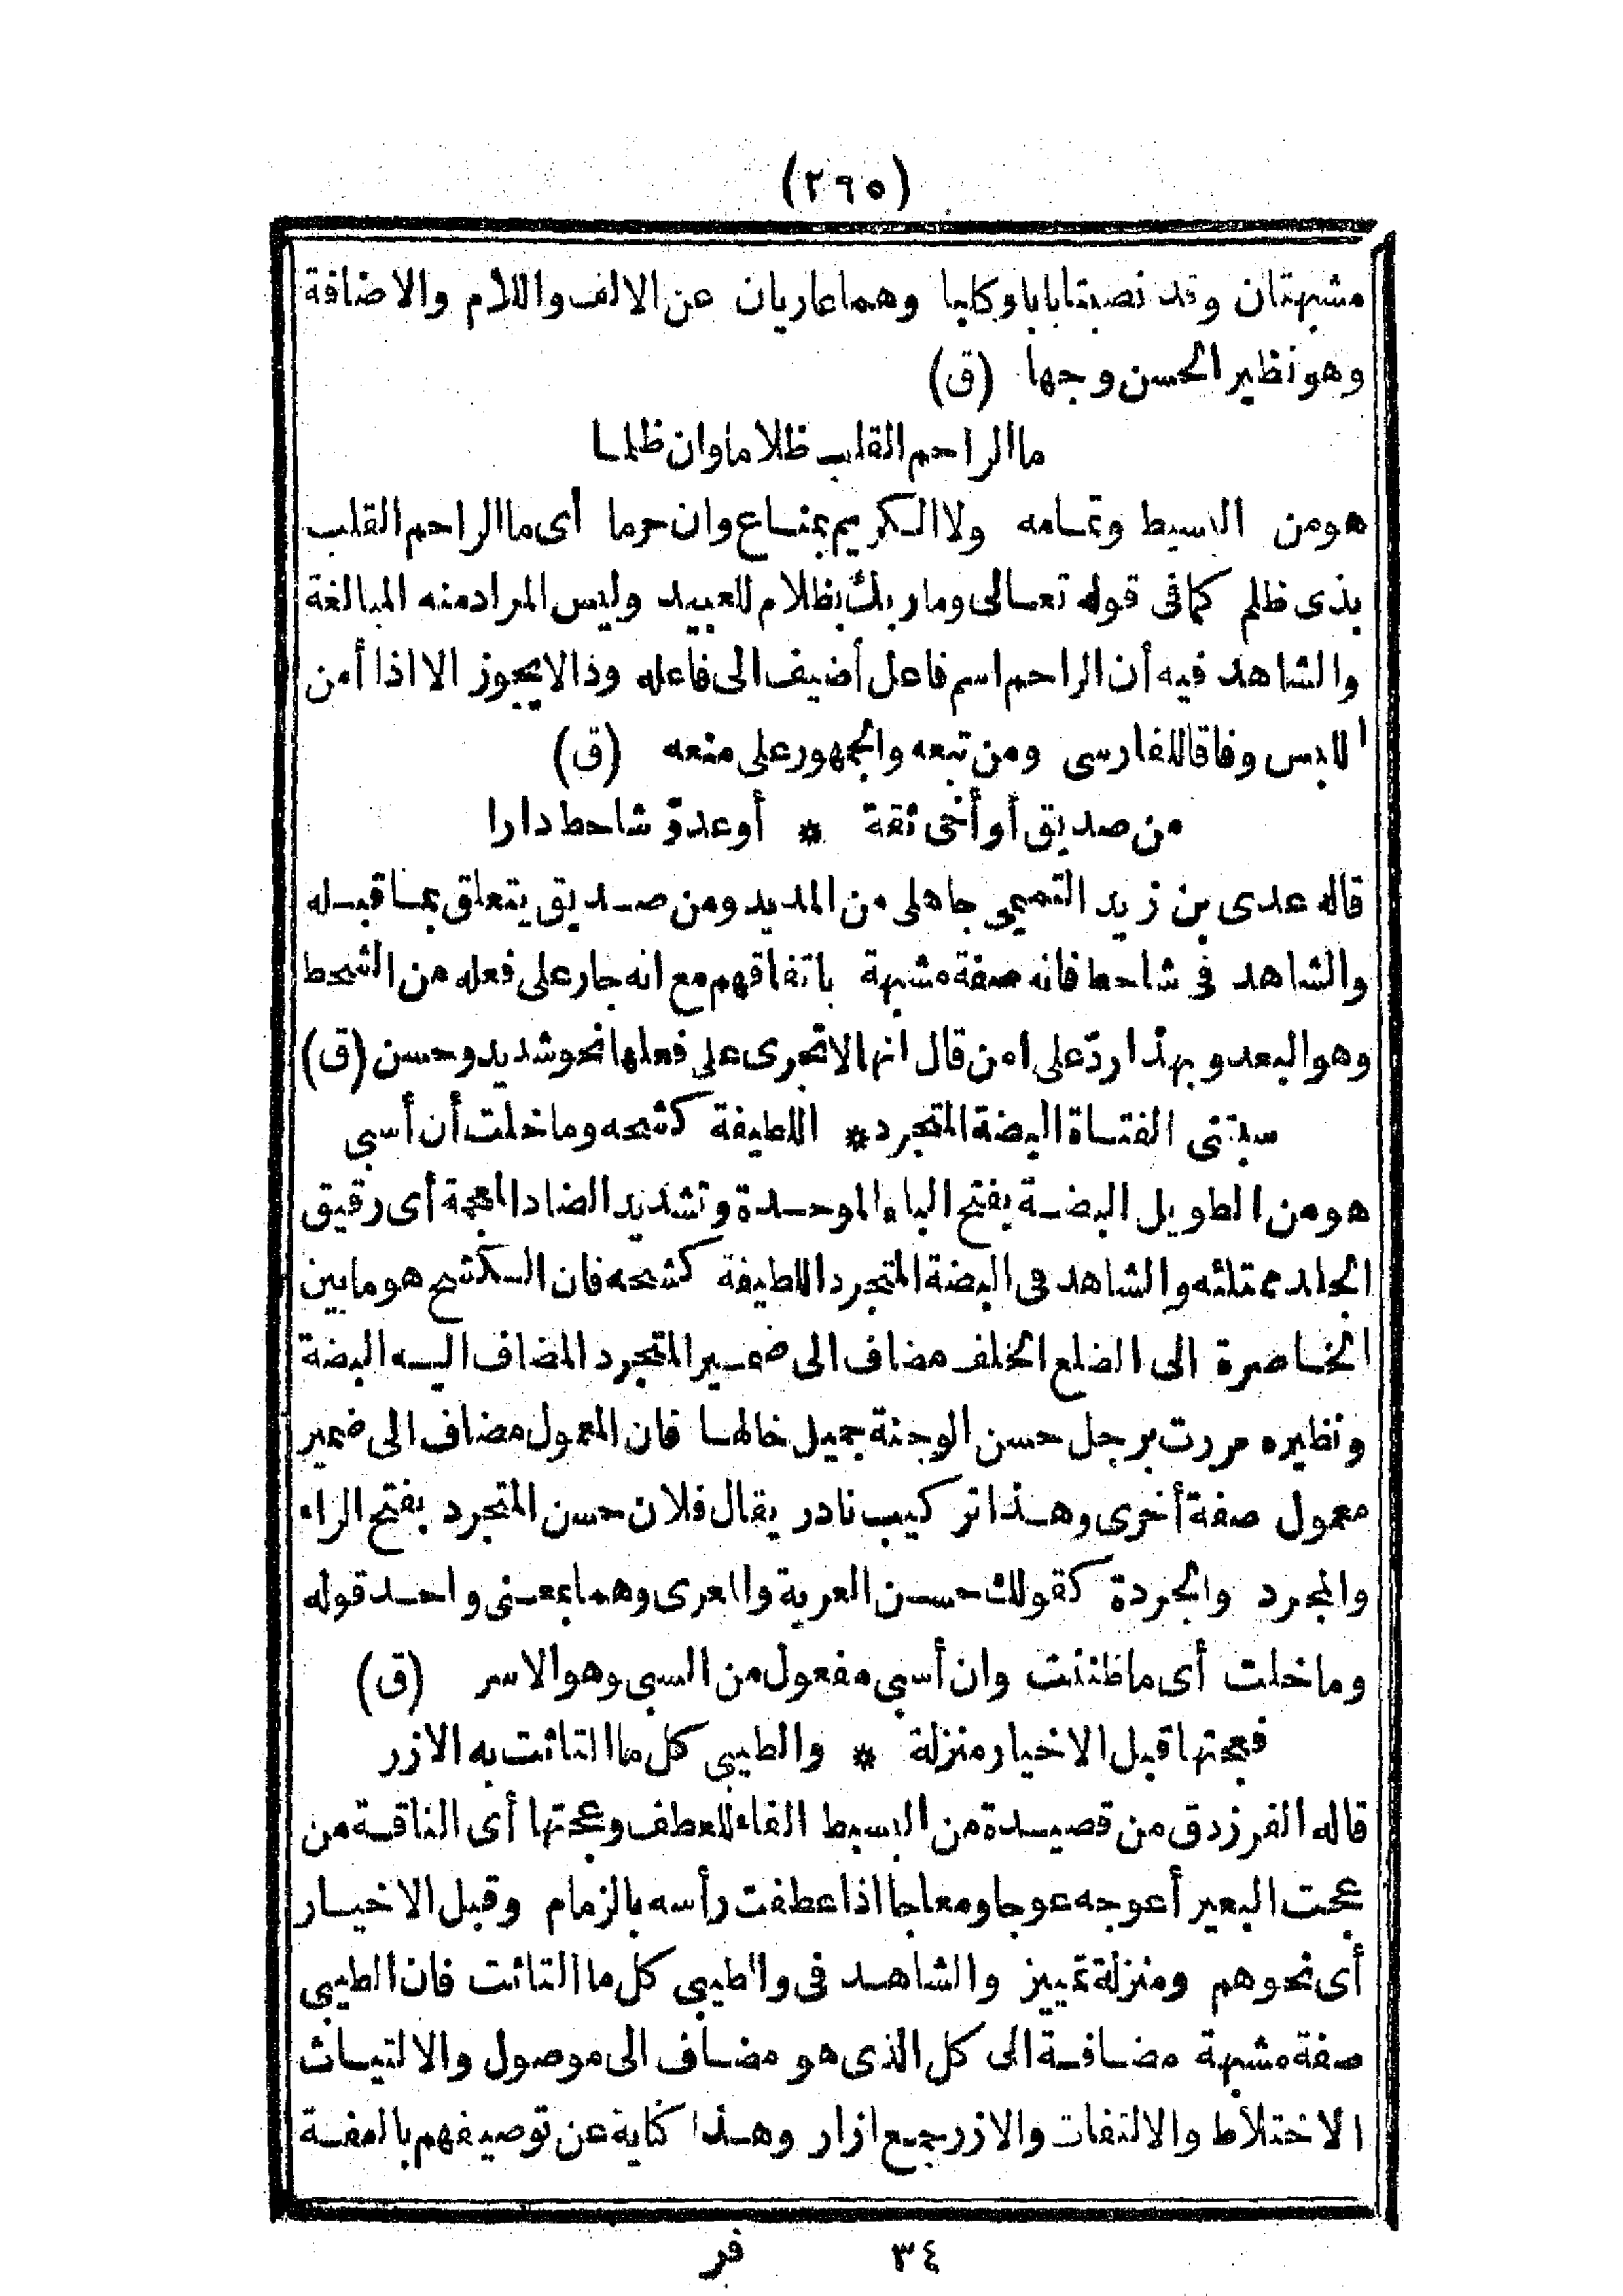 (٢٦٥)
مشبهتان وقد نصبتا بابا وكلبا وهما عاريان عن الالف واللام والاضافة
وهو نظير الحسن وجها (ق)
ما الراحم القلب ظلاما وان ظلما
هو من البسيط وتمامه ولا الكريم بمناع وان حرما أى ما الراحم القلب
بذى ظلم كما فى قوله تعالى وما ربك بظلام للعبيد وليس المراد منه المبالغة
والشاهد فيه أن الراحم اسم فاعل أضيف الى فاعله وذا لا يجوز الا اذا أمن
اللبس وفاقا للفارسى ومن تبعه والجمهور على منعه (ق)
من صديق أو أخى ثقة * أو عدوّ شاحط دارا
قاله عدى بن زيد التميمى جاهلى من المديد ومن صديق يتعلق بما قبله
والشاهد فى شاحط فانه صفة مشبهة باتفاقهم مع انه جار على فعله من الشحط
وهو البعد وبهذا ردّ على من قال انها لا تجرى على فعلها نحو شديد وحسن (ق)
سبتنى الفتاة البضة المتجرد * اللطيفة كشحه وما خلت أن أسبى
هو من الطويل البضة بفتح الباء الموحدة وتشديد الضاد المعجمة أى رقيق
الجلد ممتلئه والشاهد فى البضة المتجرد اللطيفة كشحه فان الكشح هو ما بين
الخاصرة الى الضلع الخلف مضاف الى ضمير المتجرد المضاف اليه البضة
ونظيره مررت برجل حسن الوجنة جميل خالها فان المعمول مضاف الى ضمير
معمول صفة أخرى وهذا تركيب نادر يقال فلان حسن المتجرد بفتح الراء
والمجرد والجردة كقولك حسن العرية والعرى وهما بمعنى واحد قوله
وما خلت أى ما ظننت وان أسبى مفعول من السبى وهو الاسر (ق)
فعجتها قبل الاخيار منزلة * والطيبى كل ما التاثت به الازر
قاله الفرزدق من قصيدة من البسيط الفاء للعطف وعجتها أى الناقة من
عجت البعير أعوجه عوجا ومعاجا اذا عطفت رأسه بالزمام وقبل الاخيار
أى نحوهم ومنزلة تمييز والشاهد فى والطيبى كل ما التاثت فان الطيبى
صفة مشبهة مضافة الى كل الذى هو مضاف الى موصول والالتياث
الاختلاط والالتفات والازر جمع ازار وهذا كناية عن توصيفهم بالعفة
٣٤ فر